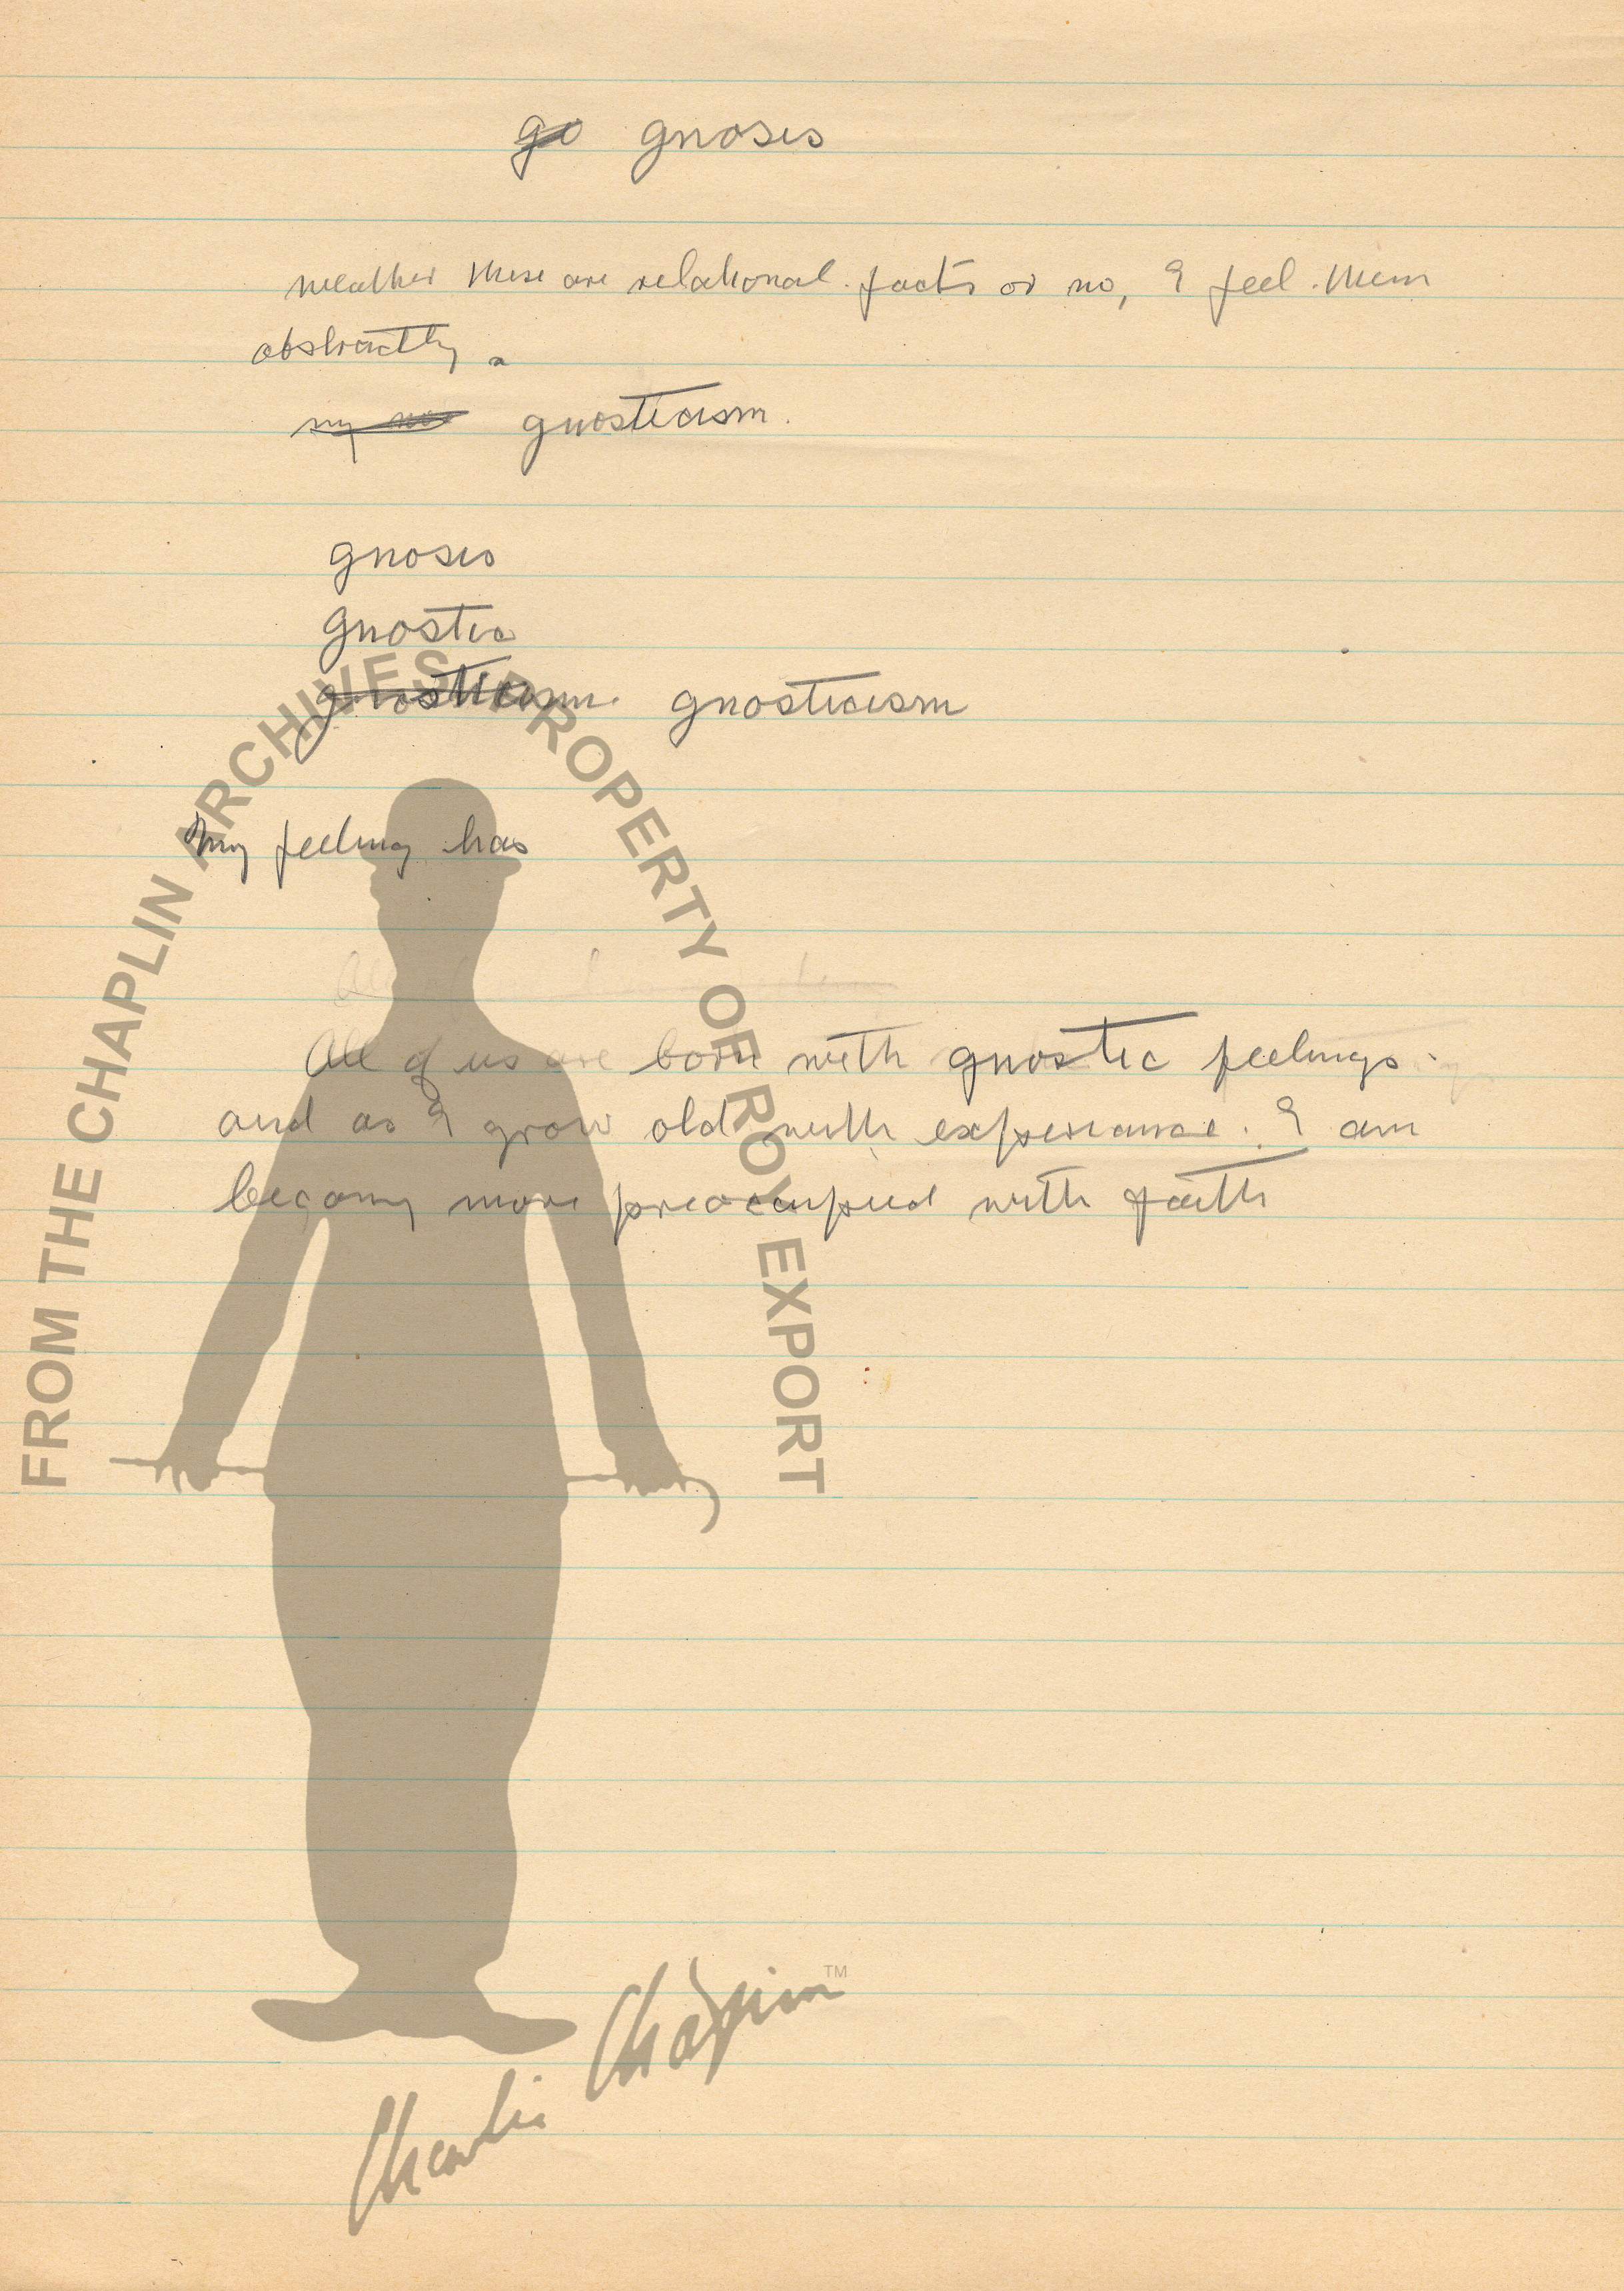 go gnosis
weather these are relational facts or no, I feel them
abstractly.
my gnosticism.
gnosis
gnostic
gnosticism. gnosticism
FROM THE CHAPLIN ARCHIVES. PROPERTY OF ROY EXPORT
my feeling has
All of us are born with gnostic feelings.
and as I grow old with experiance. I am
becoming more preoccupied with faith
Charlie Chaplin TM